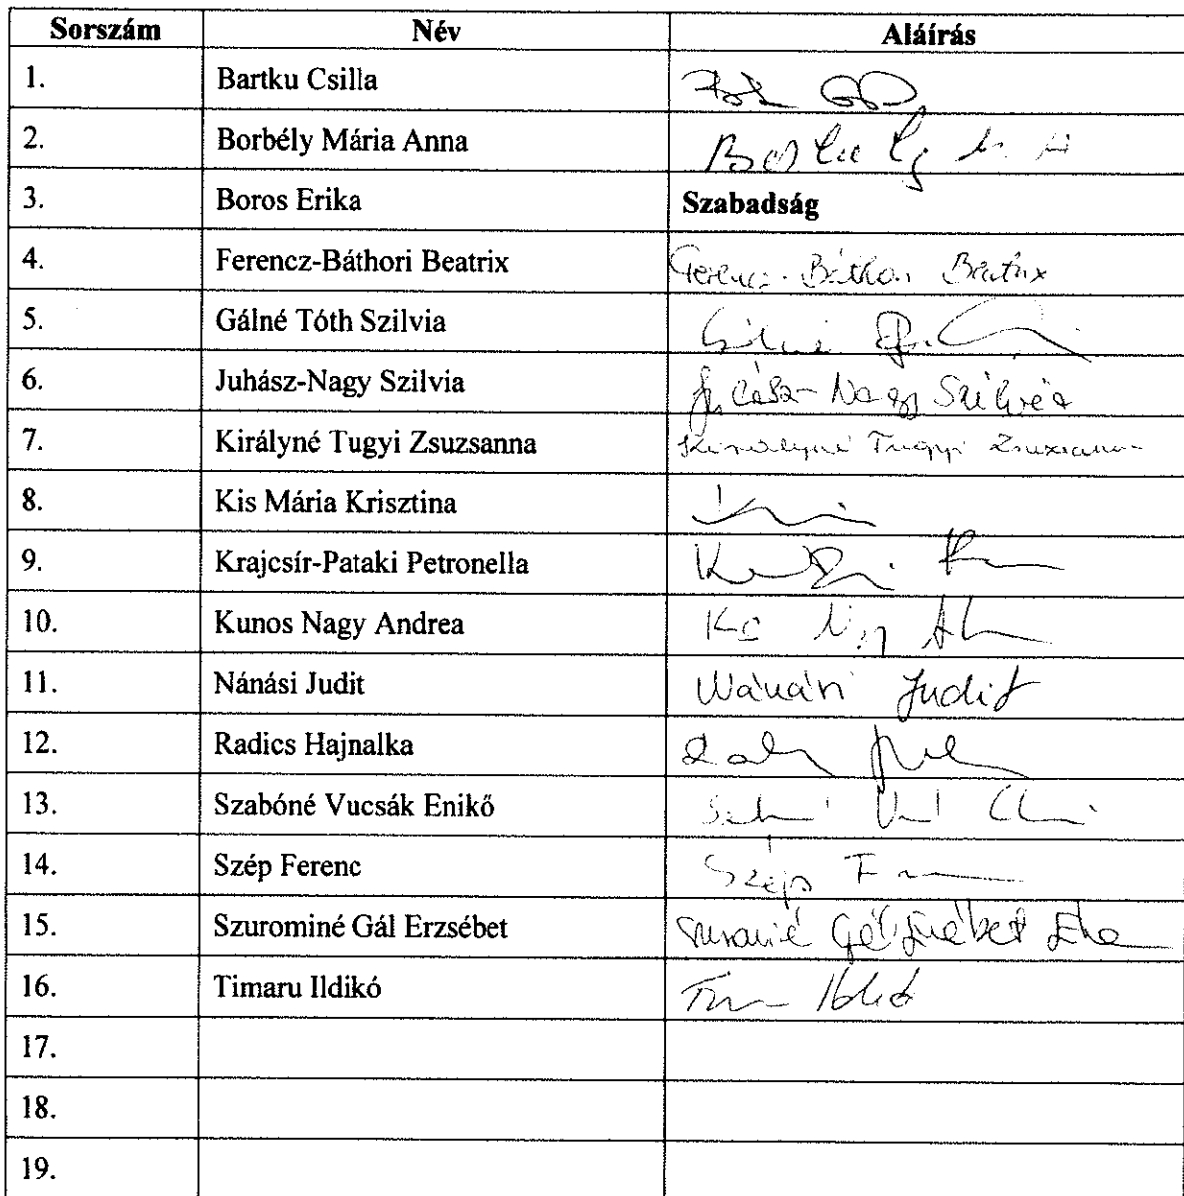 Sorszám Név Aláírás
1. Bartku Csilla
2. Borbély Mária Anna
3. Boros Erika Szabadság
4. Ferencz-Báthori Beatrix Ferencz-Báthori Beatrix
5. Gálné Tóth Szilvia
6. Juhász-Nagy Szilvia Juhász-Nagy Szilvia
7. Királyné Tugyi Zsuzsanna Királyné Tugyi Zsuzsanna
8. Kis Mária Krisztina
9. Krajcsír-Pataki Petronella
10. Kunos Nagy Andrea
11. Nánási Judit Nánási Judit
12. Radics Hajnalka
13. Szabóné Vucsák Enikő
14. Szép Ferenc Szép
15. Szurominé Gál Erzsébet
16. Timaru Ildikó Ildikó
17.
18.
19.